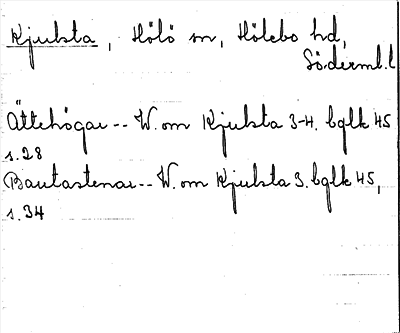 Kjulsta, Hölö sn, Hölebo hd,
Söderml. l
Ättehögar -- W. om Kjulsta 3-4. bglk 45
s. 28
Bautastenar -- W. om Kjulsta 3. bglk 45,
s. 34